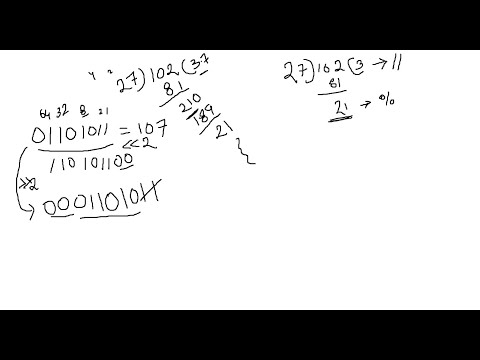 27)102(3.7
81
210
189
21
64 32 8 2 1
01101011 = 107
<<2
110101100
>>2
0001101011
27)102(3 → //
81
21 → %